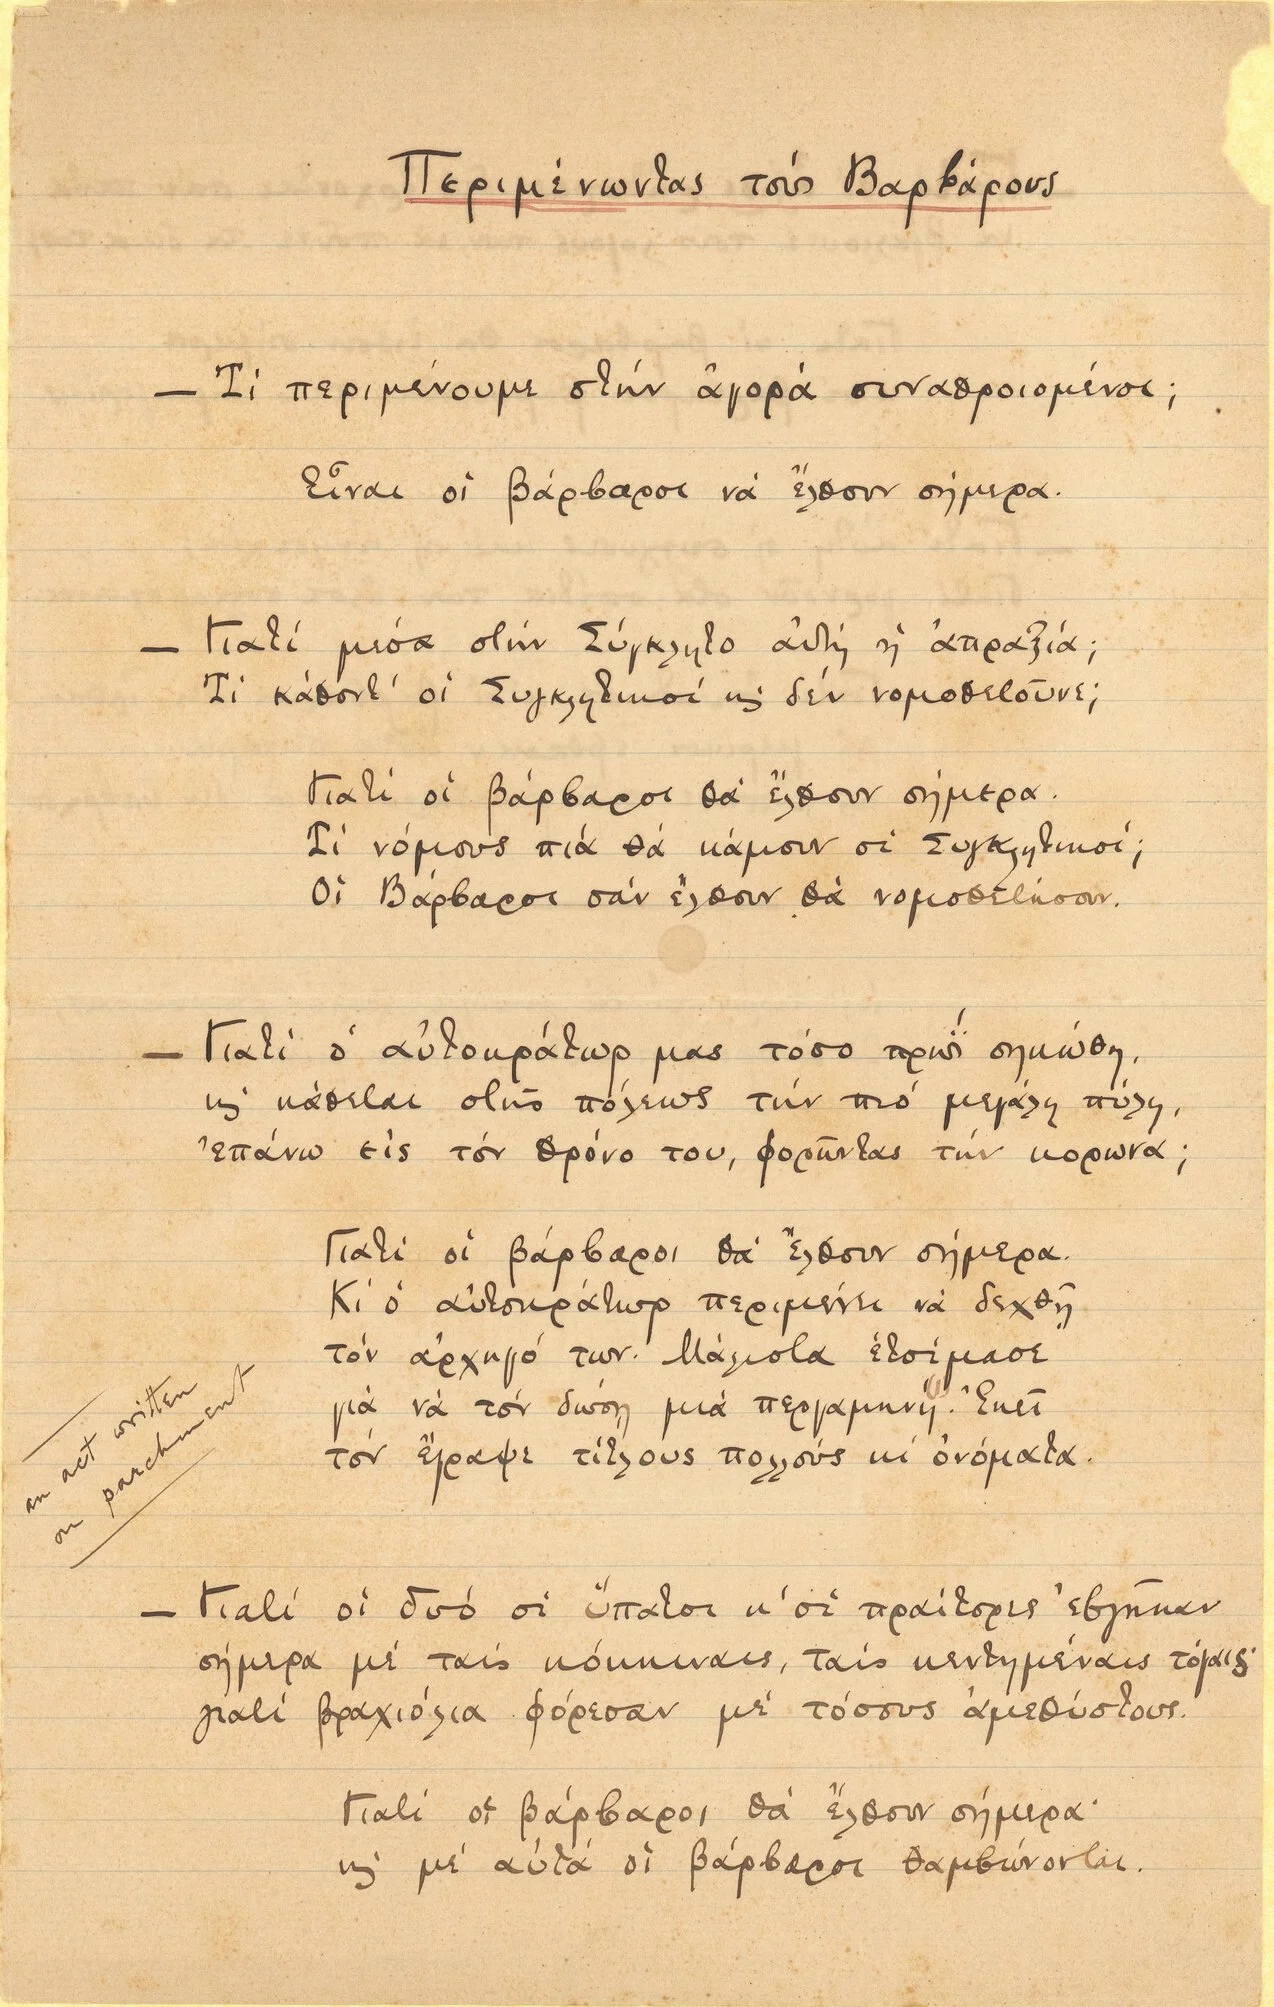 Περιμένωντας τοὺς Βαρβάρους
— Τί περιμένουμε στὴν ἀγορὰ συναθροισμένοι;
Εἶναι οἱ βάρβαροι νὰ ἔλθουν σήμερα.
— Γιατί μέσα στὴν Σύγκλητο αὐτὴ ἡ ἀπραξία;
Τί κάθοντ' οἱ Συγκλητικοὶ κϗ δὲν νομοθετοῦνε;
Γιατί οἱ βάρβαροι θὰ ἔλθουν σήμερα.
Τί νόμους πιὰ θὰ κάμουν οἱ Συγκλητικοί;
Οἱ Βάρβαροι σὰν ἔλθουν θὰ νομοθετήσουν.
— Γιατί ὁ αὐτοκράτωρ μας τόσο πρωῒ σηκώθη,
ϗ κάθεται στῆς πόλεως τὴν πιὸ μεγάλη πύλη,
ἐπάνω εἰς τὸν θρόνο του, φορῶντας τὴν κορωνα;
Γιατί οἱ βάρβαροι θὰ ἔλθουν σήμερα.
Κι ὁ αὐτοκράτωρ περιμένει νὰ δεχθῇ
τὸν ἀρχηγό των. Μάλιστα ἑτοίμασε
γιὰ νὰ τὸν δώσῃ μιὰ περγαμηνή. Ἐκεῖ
τὸν ἔγραψε τίτλους πολλοὺς κι ὀνόματα.
an act written
on parchment
— Γιατί οἱ δυό οἱ ὕπατοι κ' οἱ πραίτορες ἐβγῆκαν
σήμερα μὲ ταὶς κόκκιναις, ταὶς κεντημέναις τόγαις·
γιατί βραχιόλια φόρεσαν μὲ τόσους ἀμεθύστους.
Γιατί οἱ βάρβαροι θὰ ἔλθουν σήμερα·
ϗ μὲ αὐτὰ οἱ βάρβαροι θαμβώνονται.